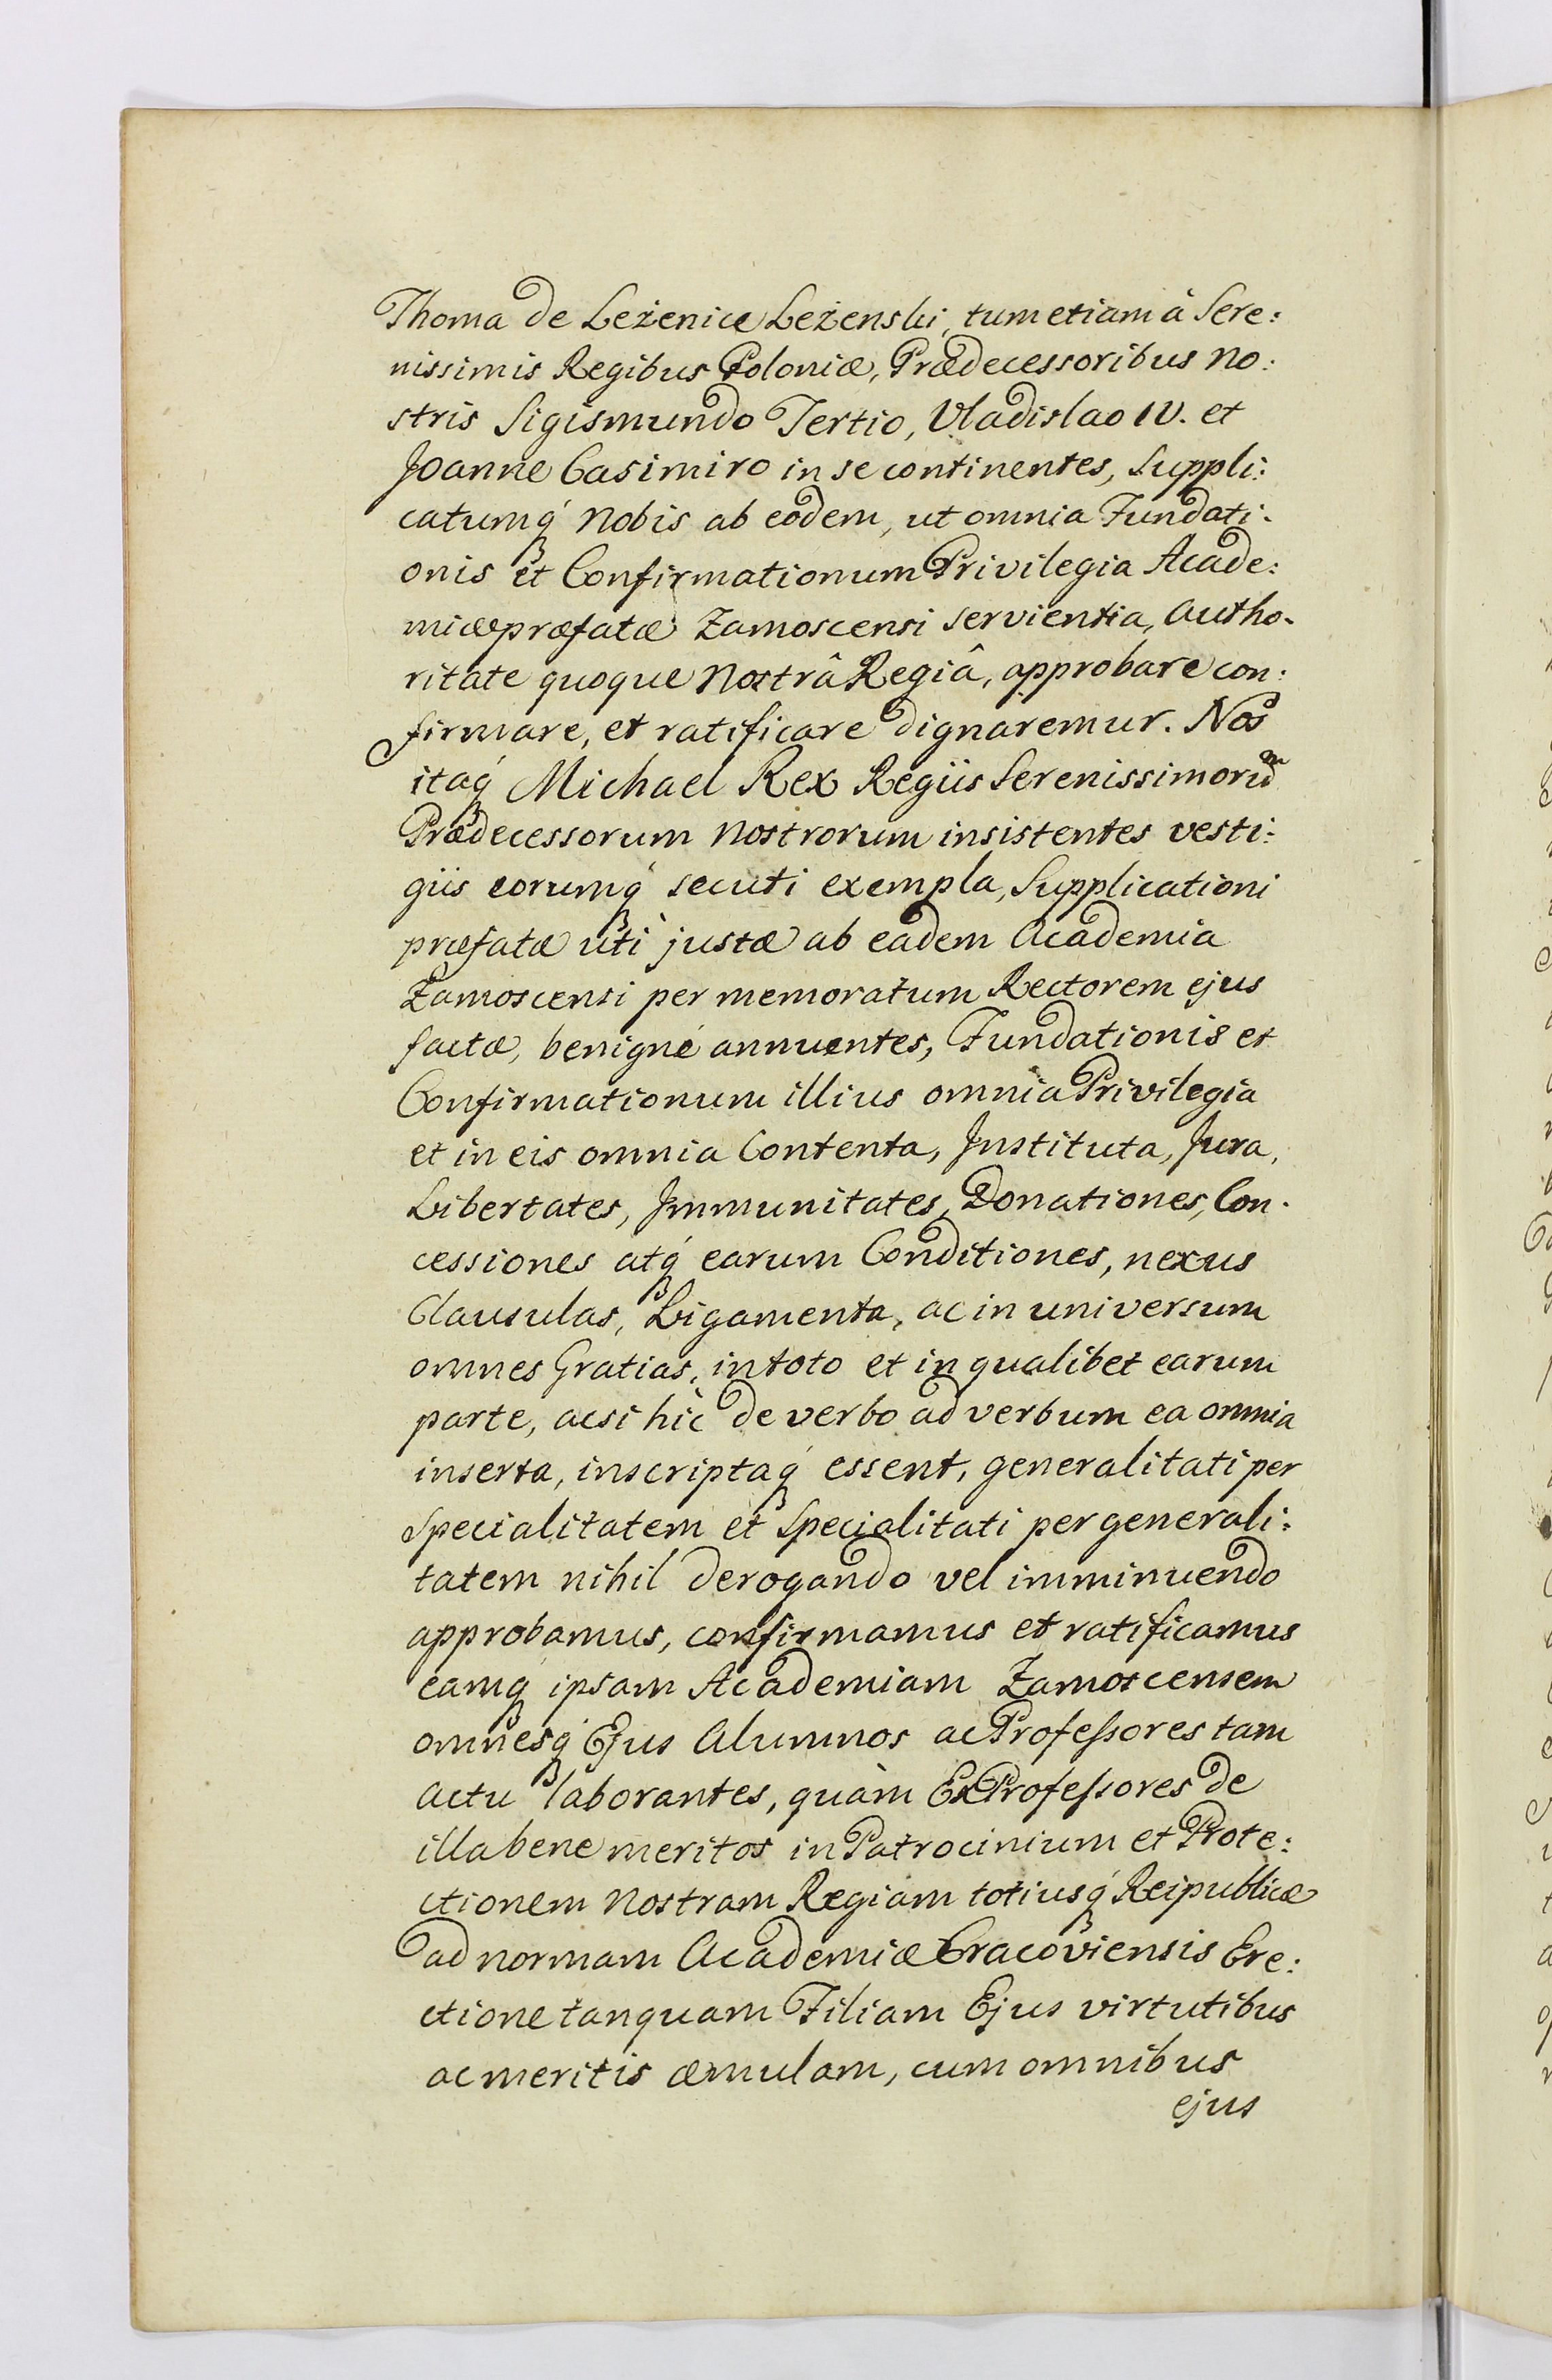 Thoma de Leżenice Leżenski, tum etiam à Sere:
nissimis Regibus Poloniæ, Prædecessoribus No:
stris Sigismundo Tertio, Vladislao IV. et
Joanne Casimiro in se continentes, Suppli:
catumq́ Nobis ab eodem, ut omnia Fundati-
onis et Confirmationum Privilegia Acade:
miæ præfatæ Zamoscensi servientia, Autho-
ritate quoque Nostrâ Regiâ, approbare con:
firmare, et ratificare dignaremur. Nos
itaq́ Michael Rex Regiis Serenissimorũ
Prædecessorum Nostrorum insistentes vesti:
giis eorumq́ secuti exempla, Supplicationi
præfatæ uti justæ ab eadem Academia
Zamoscensi per memoratum Rectorem ejus
factæ, benigné annuentes, Fundationis et
Confirmationum illius omnia Privilegia
et in eis omnia Contenta, Instituta, Jura,
Libertates, Immunitates, Donationes, Con-
cessiones atq́ earum Conditiones, nexus
Clausulas, Ligamenta, ac in universum
omnes Gratias, in toto et in qualibet earum
parte, acsi hìc de verbo ad verbum ea omnia
inserta, inscriptaq́ essent, generalitati per
Specialitatem et Specialitati per generali:
tatem nihil derogando vel imminuendo
approbamus, confirmamus et ratificamus
eamq́ ipsam Academiam Zamoscensem
omnesq́ Ejus Alumnos ac Professores tam
actu laborantes, quàm ExProfessores de
illa bene meritos in Patrocinium et Prote:
ctionem Nostram Regiam totiusq́ Reipublicæ
ad normam Academiæ Cracoviensis Ere:
ctione tanquam Filiam Ejus virtutibus
ac meritis æmulam, cum omnibus
ejus